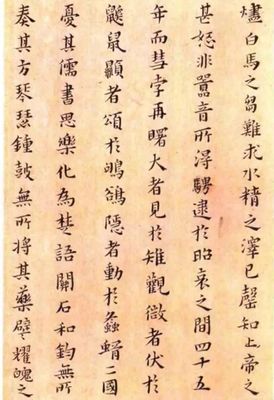 燼白馬之芻難求水精之澤已罄知上帝之
甚怒非囂音所得騁逮於昭哀之間四十五
年而彗孛再曙大者見於雉觀微者伏於
鼮鼠顯者頌於鴝鵒隱者動於螽蝑二國
憂其儒書思樂化為楚語關石和鈞無所
奏其方琴瑟鍾鼓無所將其藥耀魄之